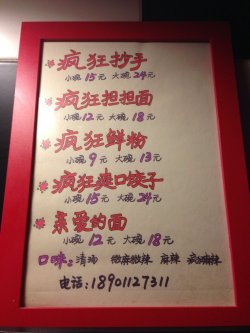 疯狂抄手
小碗 15元 大碗 24元
疯狂担担面
小碗 12元 大碗 18元
疯狂鲜粉
小碗 9元 大碗 13元
疯狂爽口饺子
小碗 15元 大碗 24元
亲爱的面
小碗 12元 大碗 18元
口味：清汤 微麻微辣 麻辣 疯狂麻辣
电话：18901127311